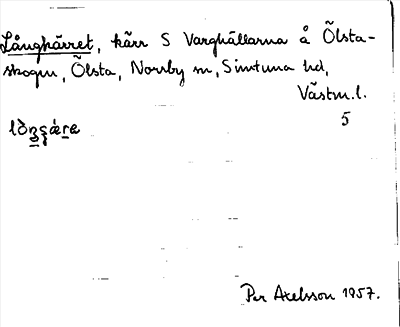 Långkärret, kärr S Varghällarna å Ölsta-
skogen, Ölsta, Norrby sn, Simtuna hd,
Västm.l.
5
Per Axelsson 1957.